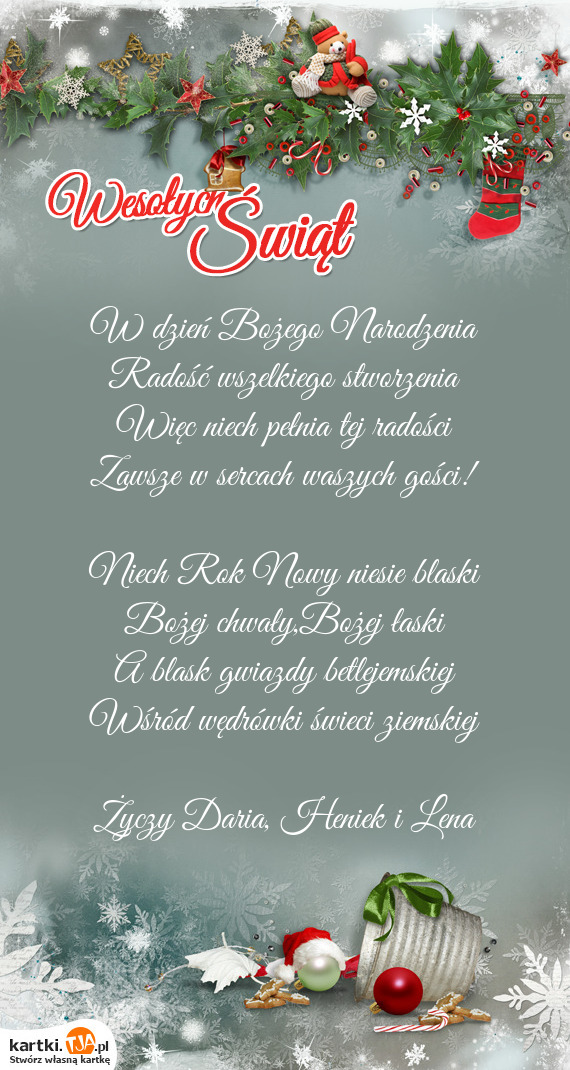 Wesołych
Świąt
W dzień Bożego Narodzenia
Radość wszelkiego stworzenia
Więc niech pełnia tej radości
Zawsze w sercach waszych gości!
Niech Rok Nowy niesie blaski
Bożej chwały,Bożej łaski
A blask gwiazdy betlejemskiej
Wśród wędrówki świeci ziemskiej
Życzy Daria, Heniek i Lena
kartki.TJA.pl
Stwórz własną kartkę